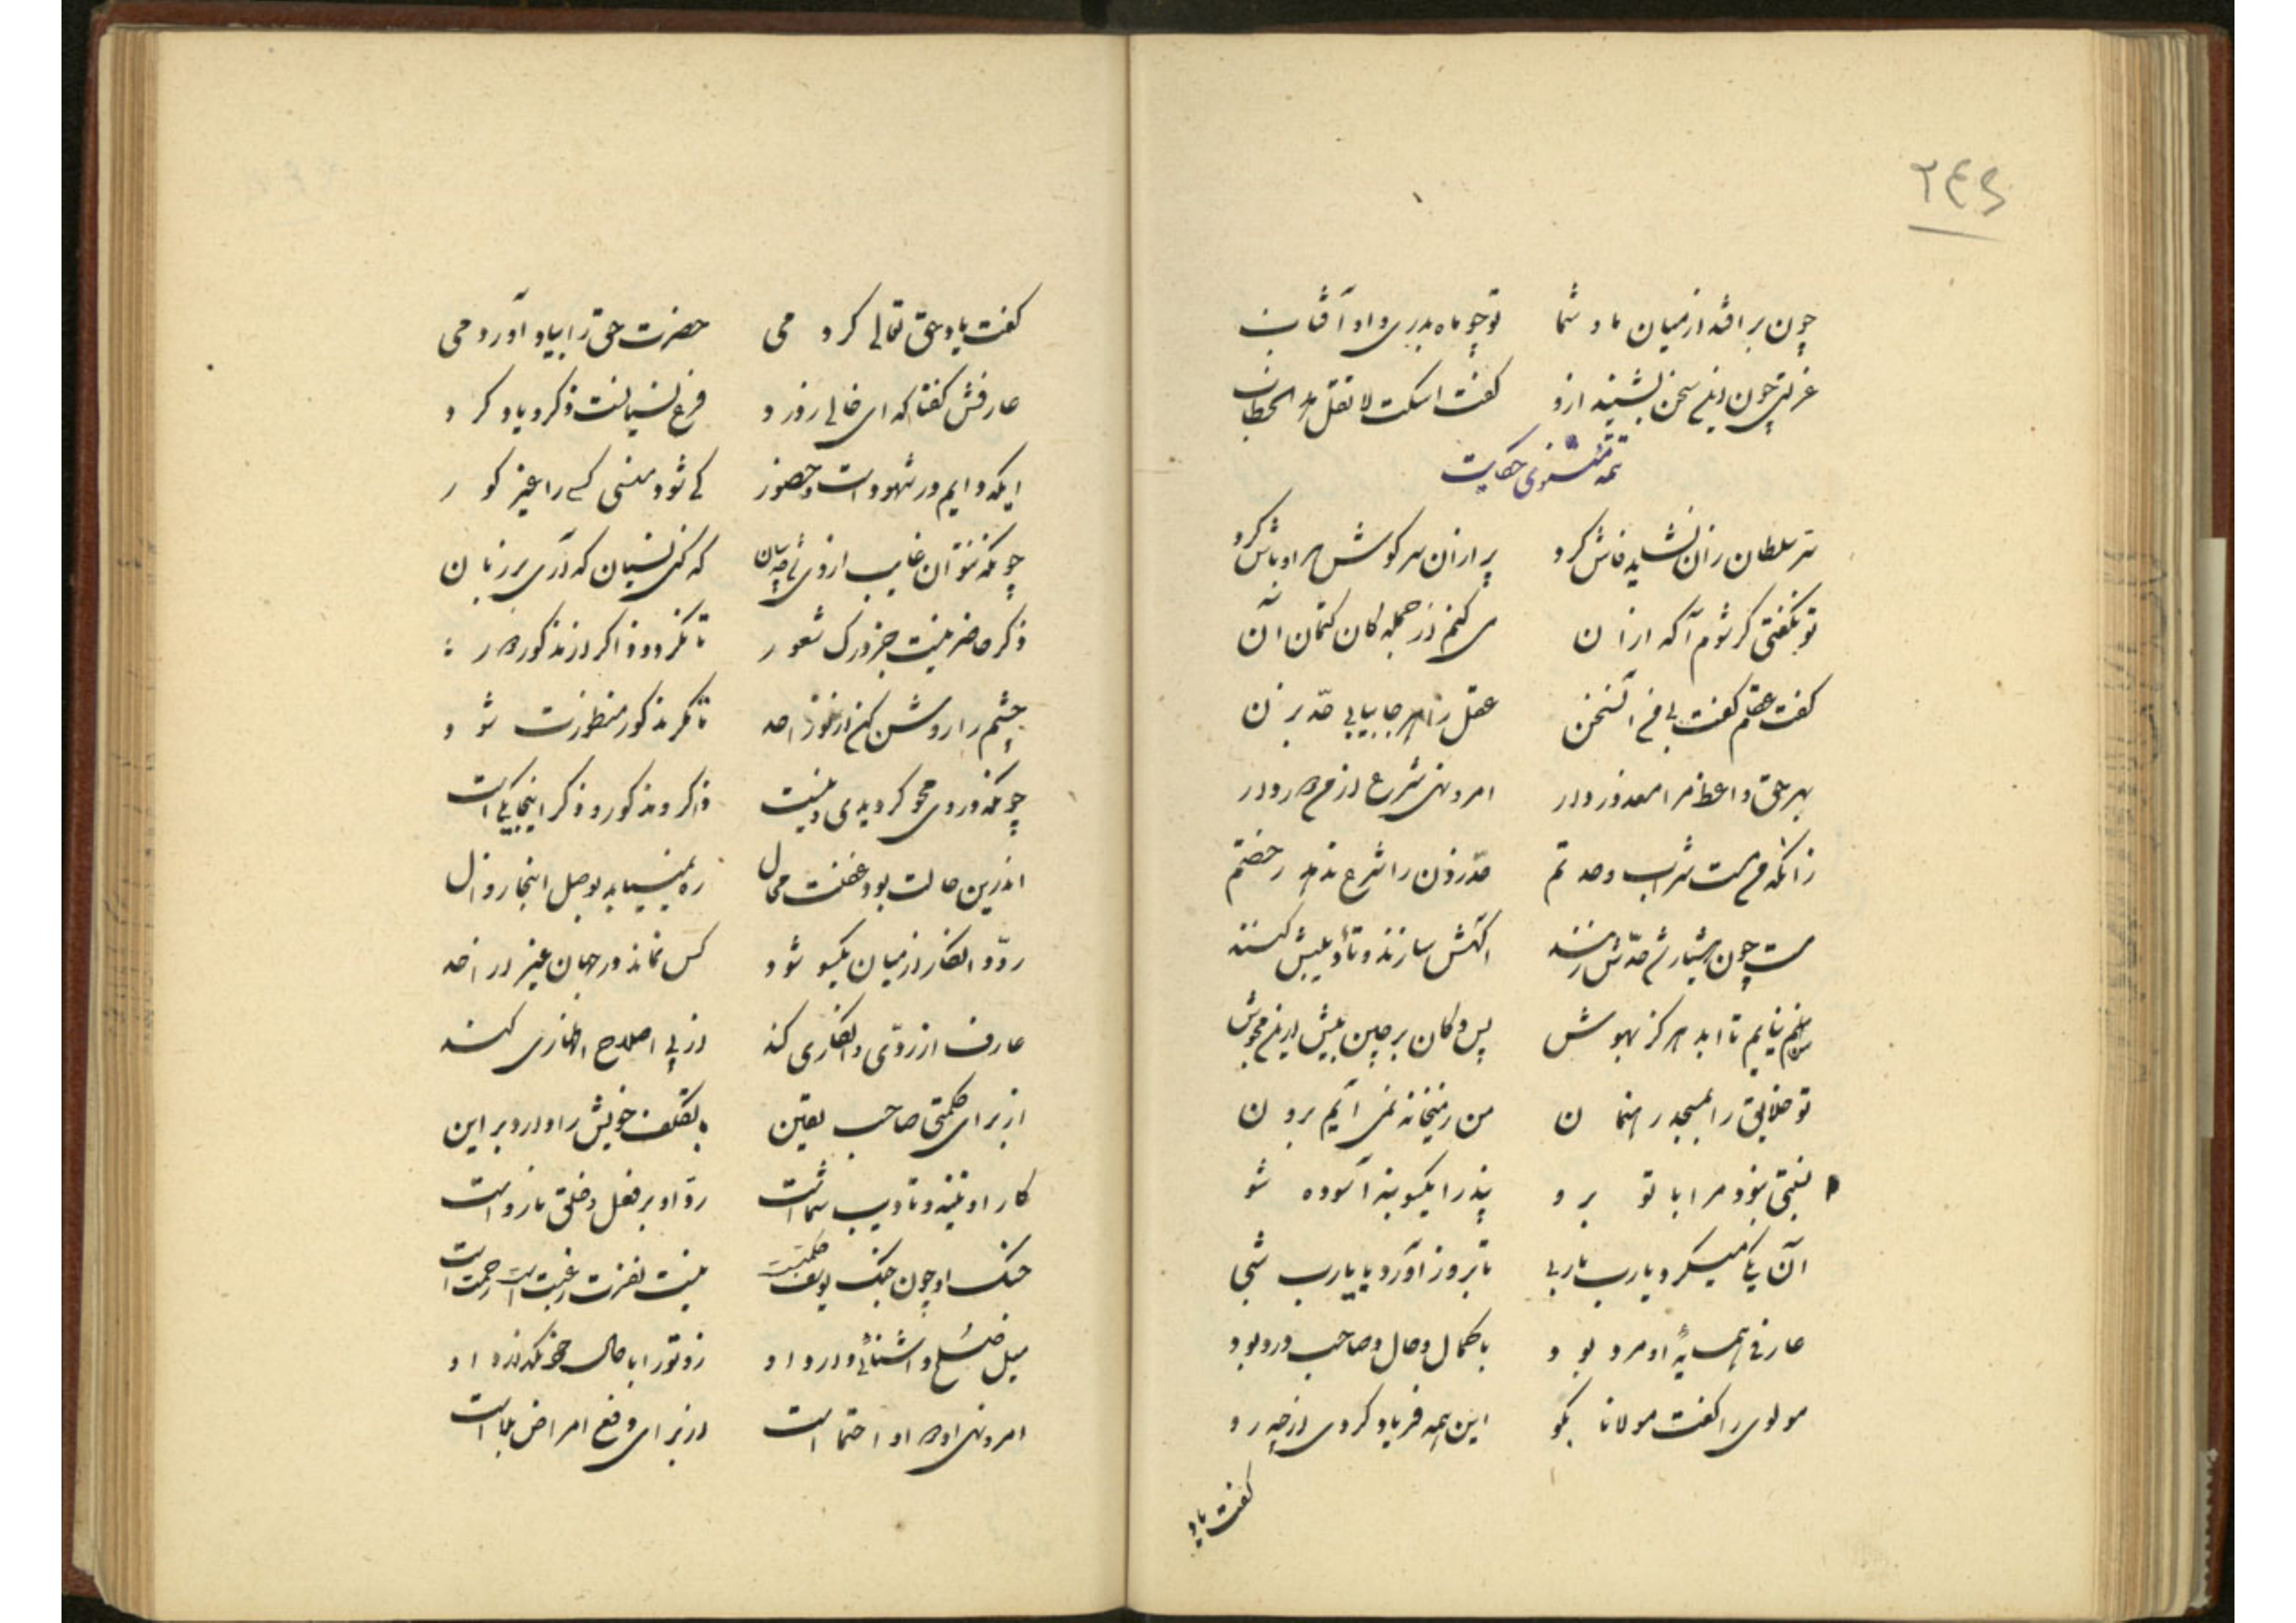 ٢٤٩
چون برافتد از میان ما و شما تو چو ماه بدری و او آفتاب
غزلتی چون این سخن بشنید ازو گفت اسکت لا تقل هذا الخطاب
تتمه مثنوی حکایت
سر سلطان را نشاید فاش کرد پر ازان سر گوش هر اوباش کرد
تو بگفتی گر شوم آگه ازان می کنم از جمله کان کتمان آن
گفت عقلم گفت بی من آن سخن عقل را هر جا بیابی حد بزن
بهر حق واعظ مرا معذور دار امر و نهی شرع از من دور دار
زانکه من مست شراب وحدتم حد زدن را شرع ندهد رخصتم
مست چون هشیار شد حدش زنند آگهش سازند و تأدیبش کنند
من نیایم تا ابد هرگز بهوش پس دکان برچین بیش از این مخروش
تو خلایق را بمسجد رهنمون من ز میخانه نمی آیم برون
نسبتی نبود مرا با تو برو پند را یکسو بنه آسوده شو
آن یکی میکرد یارب یاربی تا بروز آورد با یارب شبی
عارفی همسایهٔ او مرد بود با کمال و حال و صاحب درد بود
مولوی را گفت مولانا بگو این همه فریاد کردی از چه رو
گفت یاد
گفت یاد حق تعالی کردمی حضرت حق را بیاد آوردمی
عارفش گفتا که ای خالی ز درد فرع نسیانست ذکر و یاد کرد
اینکه دایم در شهود است و حضور کی شود منسی کسی را غیر کور
چونکه نتوان غایب از وی شد چسان که کنی نسیان که آری بر زبان
ذکر حاضر نیست جز درک شعور تا نگردد ذاکر از مذکور دور
چشم را روشن کن از نور احد تا مگر مذکور منظورت شود
چونکه در وی محو گردیدی و نیست ذاکر و مذکور و ذکر اینجا یکی است
اندرین حالت بود غفلت محال ره نمییابد بوصل اینجا زوال
رد و انکار از میان یکسو شود کس نماند در جهان غیر از احد
عارف ار ردی و انکاری کند از پی اصلاح اظهاری کند
از برای حکمتی صاحب یقین با تکلف خویش را دارد بر این
کار او تنبیه و تادیب شماست رد او بر فعل و خلق نارواست
جنگ او چون جنگ یوسف حکمت است نیست نفرت رغبت است رحمت است
میل صلح و آشنائی دارد او زو تو را با حال خود نگذارد او
امر و نهی او دوا و احتما است از برای دفع امراض بلاست